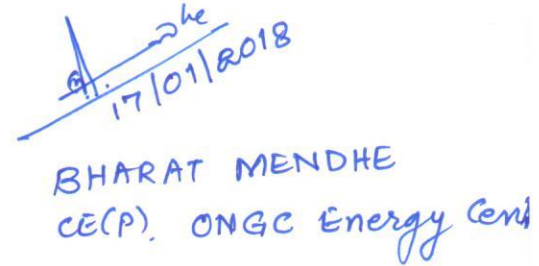 17/01/2018
BHARAT MENDHE
CE(P), ONGC Energy Cen